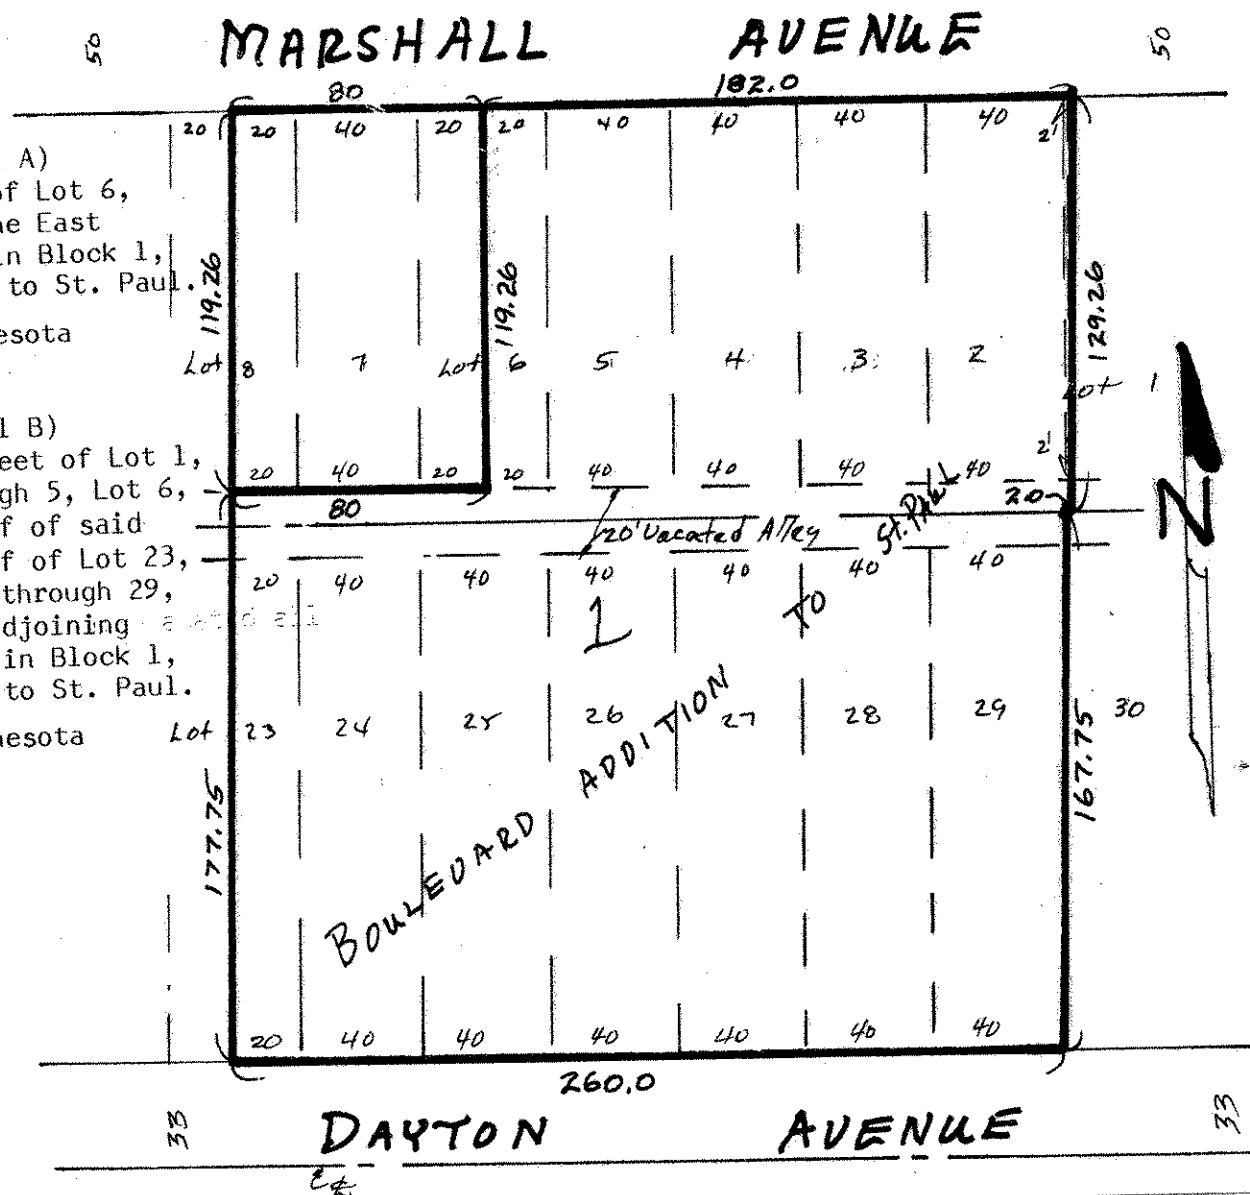 50 MARSHALL AVENUE 50
80 182.0
20 20 40 20 20 40 40 40 40 2'
A)
of Lot 6,
he East
in Block 1,
to St. Paul.
esota
119.26 119.26 129.26
Lot 8 7 Lot 6 5 4 3 2 Lot 1
l B)
eet of Lot 1,
gh 5, Lot 6,
f of said
f of Lot 23,
through 29,
djoining
in Block 1,
to St. Paul.
nesota
20 40 20 20 40 40 40 40 2'
80 20
20' Vacated Alley
20 40 40 40 40 40 40
1
BOULEVARD ADDITION TO St. Paul
N
Lot 23 24 25 26 27 28 29 30
177.75 167.75
20 40 40 40 40 40 40
260.0
33 DAYTON AVENUE 33